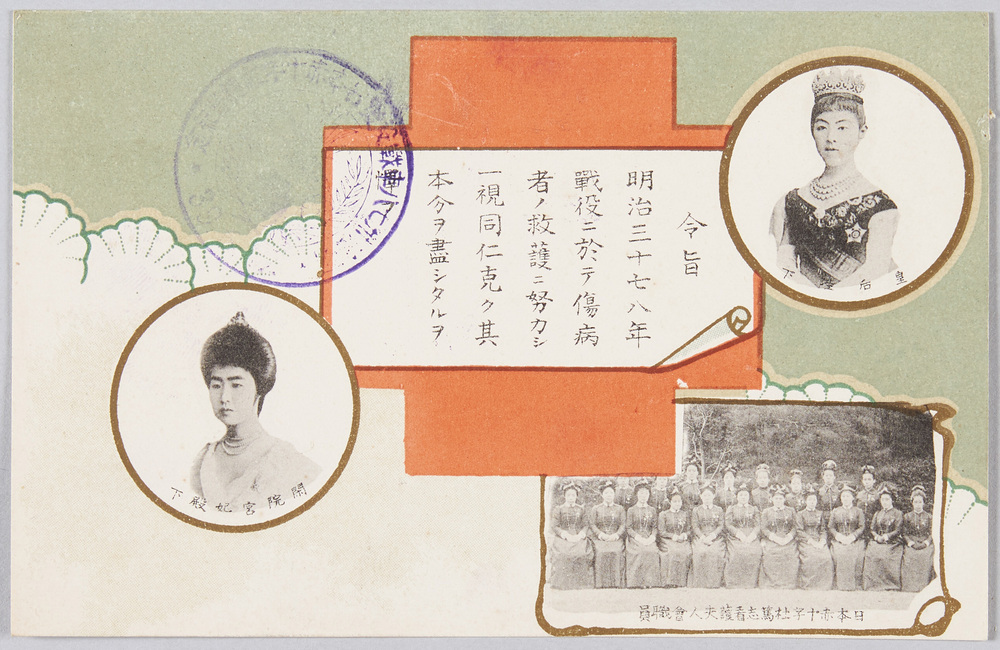 令旨
明治三十七八年
戰役ニ於テ傷病
者ノ救護ニ努力シ
一視同仁克ク其
本分ヲ盡シタルヲ
皇后陛下
閑院宮妃殿下
日本赤十字社篤志看護夫人會職員